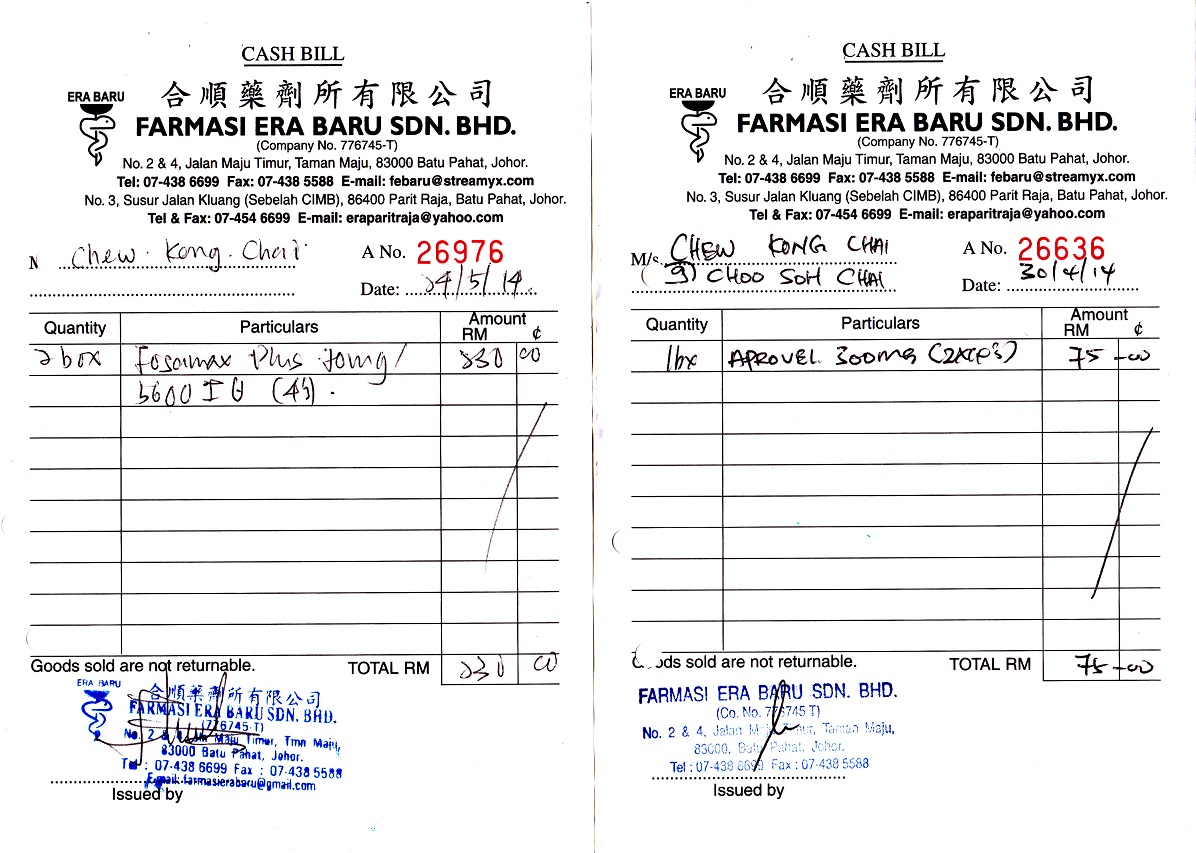 CASH BILL
ERA BARU
合順藥劑所有限公司
FARMASI ERA BARU SDN. BHD.
(Company No. 776745-T)
No. 2 & 4, Jalan Maju Timur, Taman Maju, 83000 Batu Pahat, Johor.
Tel: 07-438 6699 Fax: 07-438 5588 E-mail: febaru@streamyx.com
No. 3, Susur Jalan Kluang (Sebelah CIMB), 86400 Parit Raja, Batu Pahat, Johor.
Tel & Fax: 07-454 6699 E-mail: eraparitraja@yahoo.com
Chew Kong Chai A No. 26976
Date: 24/5/14
Quantity Particulars Amount
RM ¢
2 box Fosamax Plus 70mg/ 230 00
5600 IU (4's).
Goods sold are not returnable. TOTAL RM 230 00
ERA BARU
合順藥劑所有限公司
FARMASI ERA BARU SDN. BHD.
(776745-T)
No. 2 & 4, Jalan Maju Timur, Tmn Maju,
83000 Batu Pahat, Johor.
Tel : 07-438 6699 Fax : 07-438 5588
E-mail: farmasierabaru@gmail.com
Issued by
CASH BILL
ERA BARU
合順藥劑所有限公司
FARMASI ERA BARU SDN. BHD.
(Company No. 776745-T)
No. 2 & 4, Jalan Maju Timur, Taman Maju, 83000 Batu Pahat, Johor.
Tel: 07-438 6699 Fax: 07-438 5588 E-mail: febaru@streamyx.com
No. 3, Susur Jalan Kluang (Sebelah CIMB), 86400 Parit Raja, Batu Pahat, Johor.
Tel & Fax: 07-454 6699 E-mail: eraparitraja@yahoo.com
M/s. CHEW KONG CHAI A No. 26636
CHOO SOH CHAI Date: 30/4/14
Quantity Particulars Amount
RM ¢
1bx APROVEL 300mg 75 -00
Goods sold are not returnable. TOTAL RM 75 -00
FARMASI ERA BARU SDN. BHD.
(Co. No. 776745 T)
No. 2 & 4, Jalan Maju Timur, Taman Maju,
83000, Batu Pahat, Johor.
Tel : 07-438 6699 Fax : 07-438 5588
Issued by